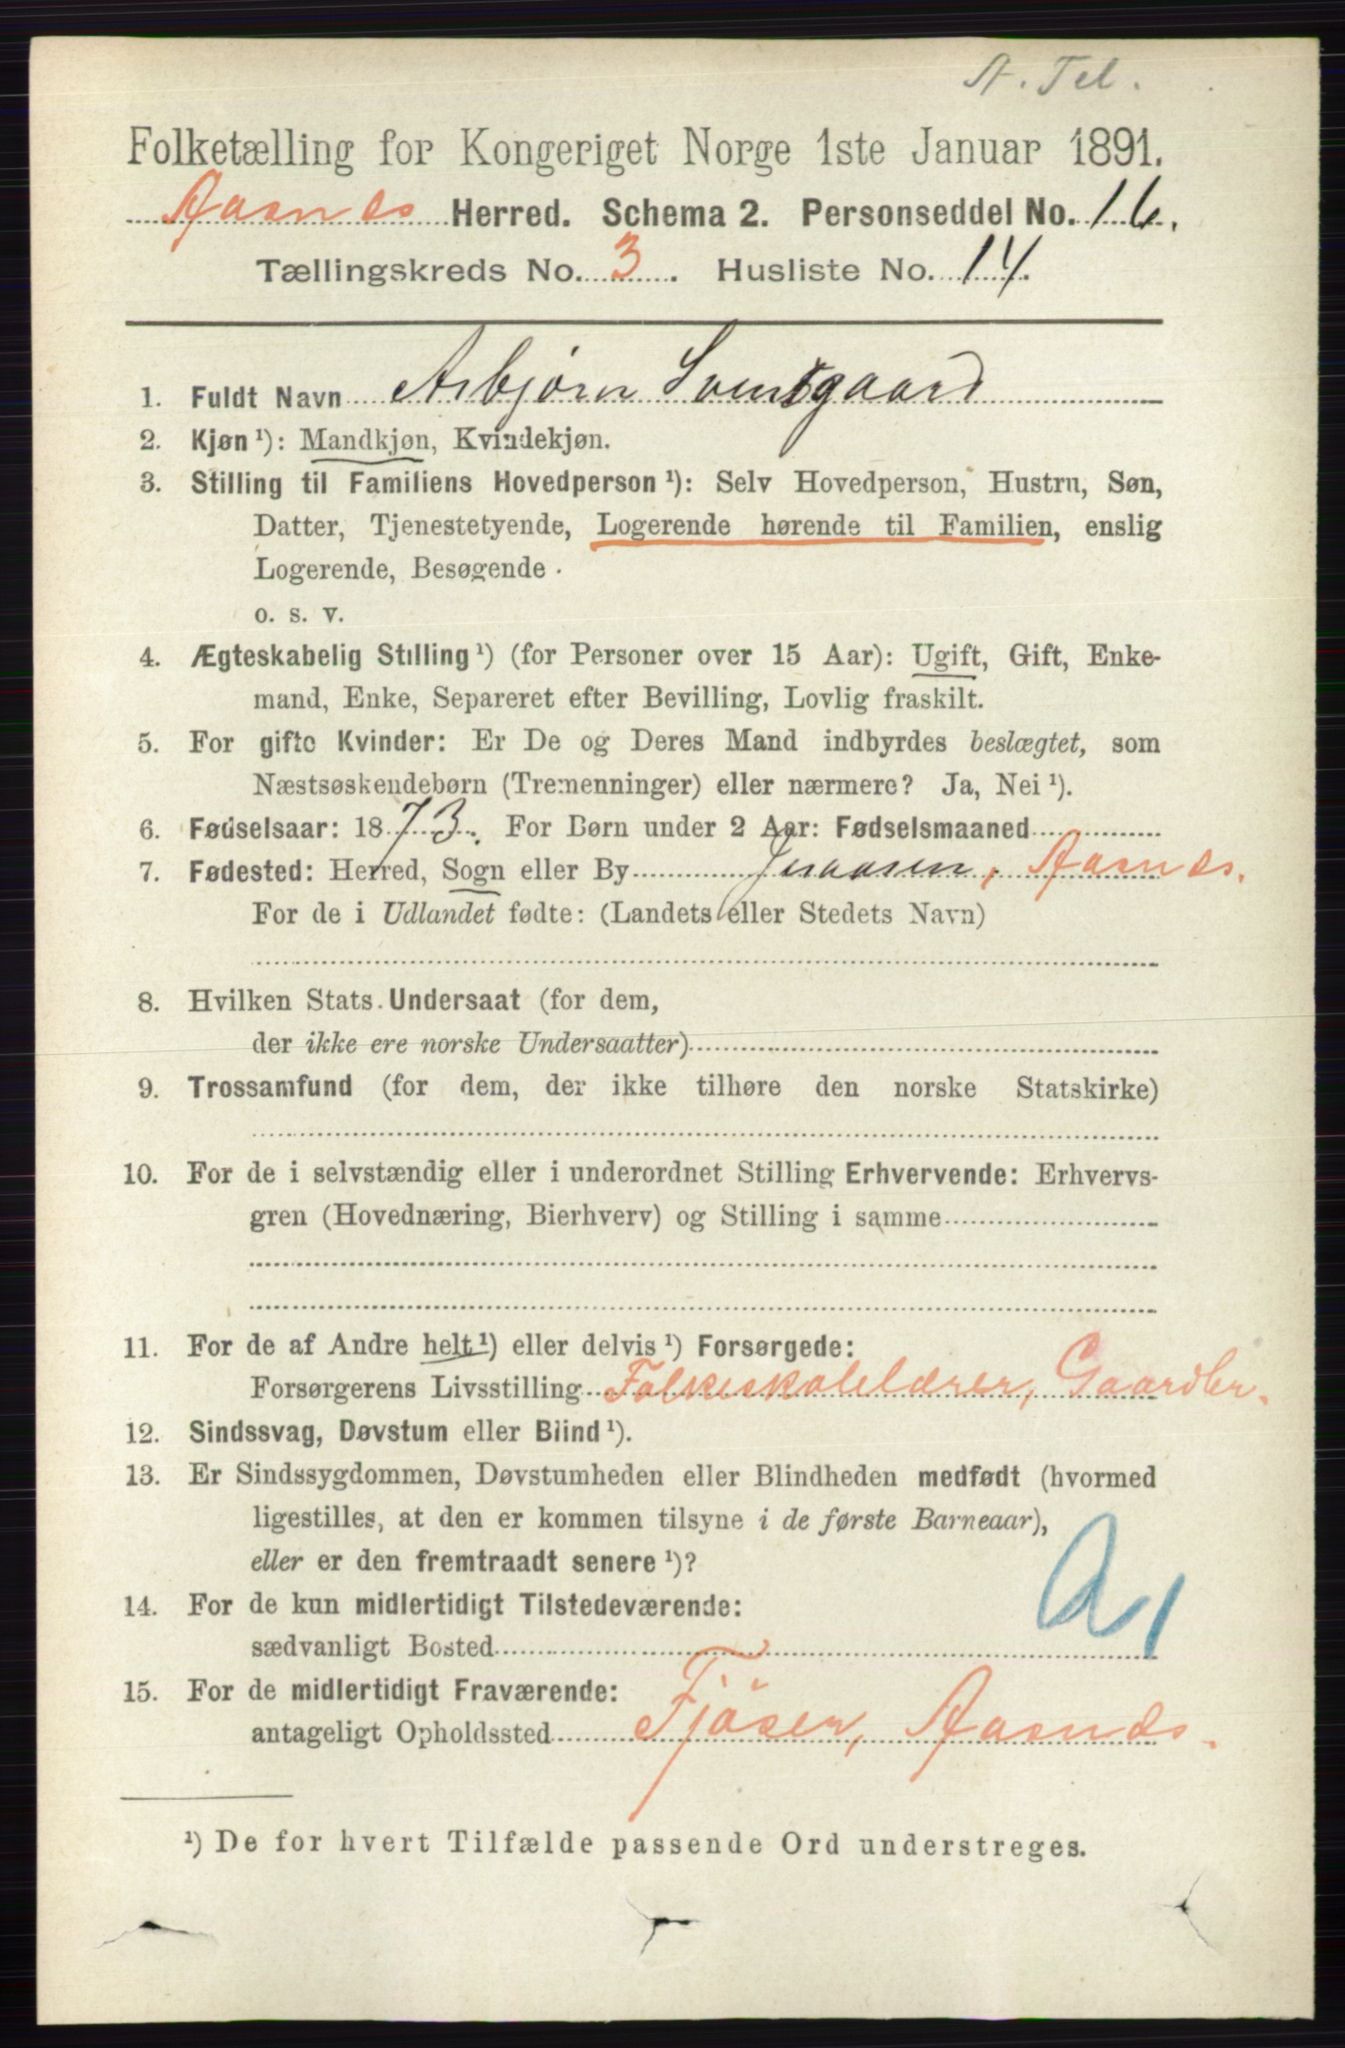 A. Tel.
Folketælling for Kongeriget Norge 1ste Januar 1891.
Aasnes Herred. Schema 2. Personseddel No. 16.
Tællingskreds No. 3. Husliste No. 14.
1. Fuldt Navn Asbjørn Svensgaard
2. Kjøn ¹): Mandkjøn, Kvindekjøn.
3. Stilling til Familiens Hovedperson ¹): Selv Hovedperson, Hustru, Søn,
Datter, Tjenestetyende, Logerende hørende til Familien, enslig
Logerende, Besøgende
o. s. v.
4. Ægteskabelig Stilling ¹) (for Personer over 15 Aar): Ugift, Gift, Enke-
mand, Enke, Separeret efter Bevilling, Lovlig fraskilt.
5. For gifte Kvinder: Er De og Deres Mand indbyrdes beslægtet, som
Næstsøskendebørn (Tremenninger) eller nærmere? Ja, Nei ¹).
6. Fødselsaar: 1873. For Børn under 2 Aar: Fødselsmaaned
7. Fødested: Herred, Sogn eller By Gruaasen, Aasnes.
For de i Udlandet fødte: (Landets eller Stedets Navn)
8. Hvilken Stats Undersaat (for dem,
der ikke ere norske Undersaatter)
9. Trossamfund (for dem, der ikke tilhøre den norske Statskirke)
10. For de i selvstændig eller i underordnet Stilling Erhvervende: Erhvervs-
gren (Hovednæring, Bierhverv) og Stilling i samme
11. For de af Andre helt ¹) eller delvis ¹) Forsørgede:
Forsørgerens Livsstilling Folkeskolelærer, Gaardbr.
12. Sindssvag, Døvstum eller Blind ¹).
13. Er Sindssygdommen, Døvstumheden eller Blindheden medfødt (hvormed
ligestilles, at den er kommen tilsyne i de første Barneaar),
eller er den fremtraadt senere ¹)?
14. For de kun midlertidigt Tilstedeværende:
sædvanligt Bosted
15. For de midlertidigt Fraværende:
antageligt Opholdssted Fjöser, Aasnes.
¹) De for hvert Tilfælde passende Ord understreges.